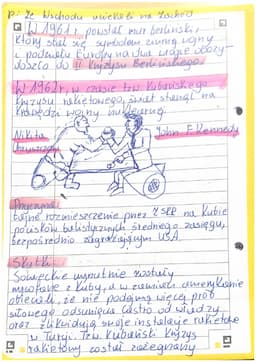 Ze Wschodu uciekali na Zachód
W 1961 r. powstał mur berliński,
który stał się symbolem zimnej wojny
i podziału Europy na dwa wrogie obozy-
doszło do II Kryzysu Berlińskiego.
W 1962 r, w czasie tzw. Kubańskiego
kryzysu rakietowego, świat stanął na
krawędzi wojny nuklearnej.
Nikita John F. Kennedy
Chruszczow
Przyczyna:
tajne rozmieszczenie przez ZSRR na Kubie
pocisków balistycznych średniego zasięgu,
bezpośrednio zagrażającym USA.
Skutki:
Sowieckie wyrzutnie zostały
wycofane z Kuby, a w zamian amerykanie
obiecali, że nie podejmą więcej prób
siłowego odsunięcia Castro od władzy
oraz zlikwidują swoje instalacje rakietowe
w Turcji. Tzw. Kubański Kryzys
rakietowy został zażegnany